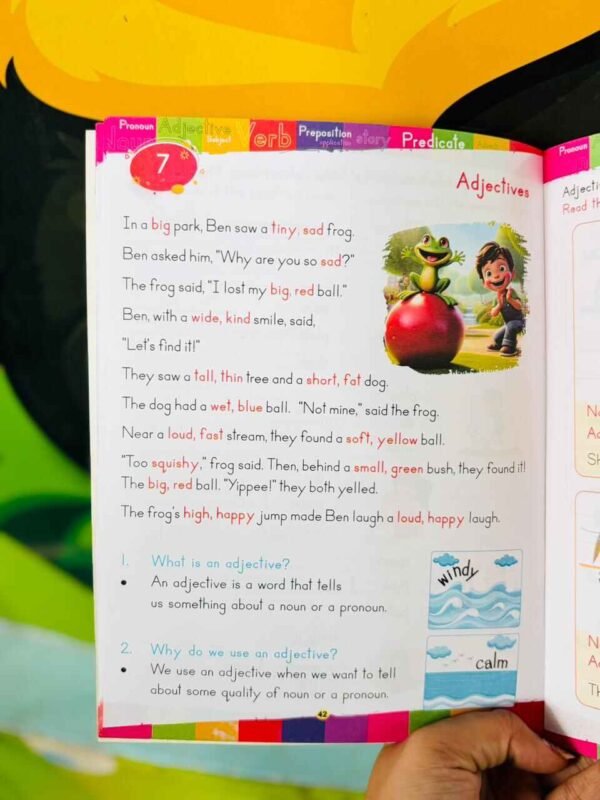 Pronoun Adjective Verb Preposition story Predicate
Noun Subject application
Pronoun
7
Adjectives
In a big park, Ben saw a tiny, sad frog.
Ben asked him, "Why are you so sad?"
The frog said, "I lost my big, red ball."
Ben, with a wide, kind smile, said,
"Let's find it!"
They saw a tall, thin tree and a short, fat dog.
The dog had a wet, blue ball. "Not mine," said the frog.
Near a loud, fast stream, they found a soft, yellow ball.
"Too squishy," frog said. Then, behind a small, green bush, they found it!
The big, red ball. "Yippee!" they both yelled.
The frog's high, happy jump made Ben laugh a loud, happy laugh.
1. What is an adjective?
• An adjective is a word that tells
us something about a noun or a pronoun.
windy
2. Why do we use an adjective?
• We use an adjective when we want to tell
about some quality of noun or a pronoun.
calm
42
Read th